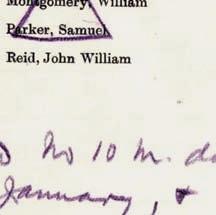 Montgomery, William
Parker, Samuel
Reid, John William
No 10 M.
January, +